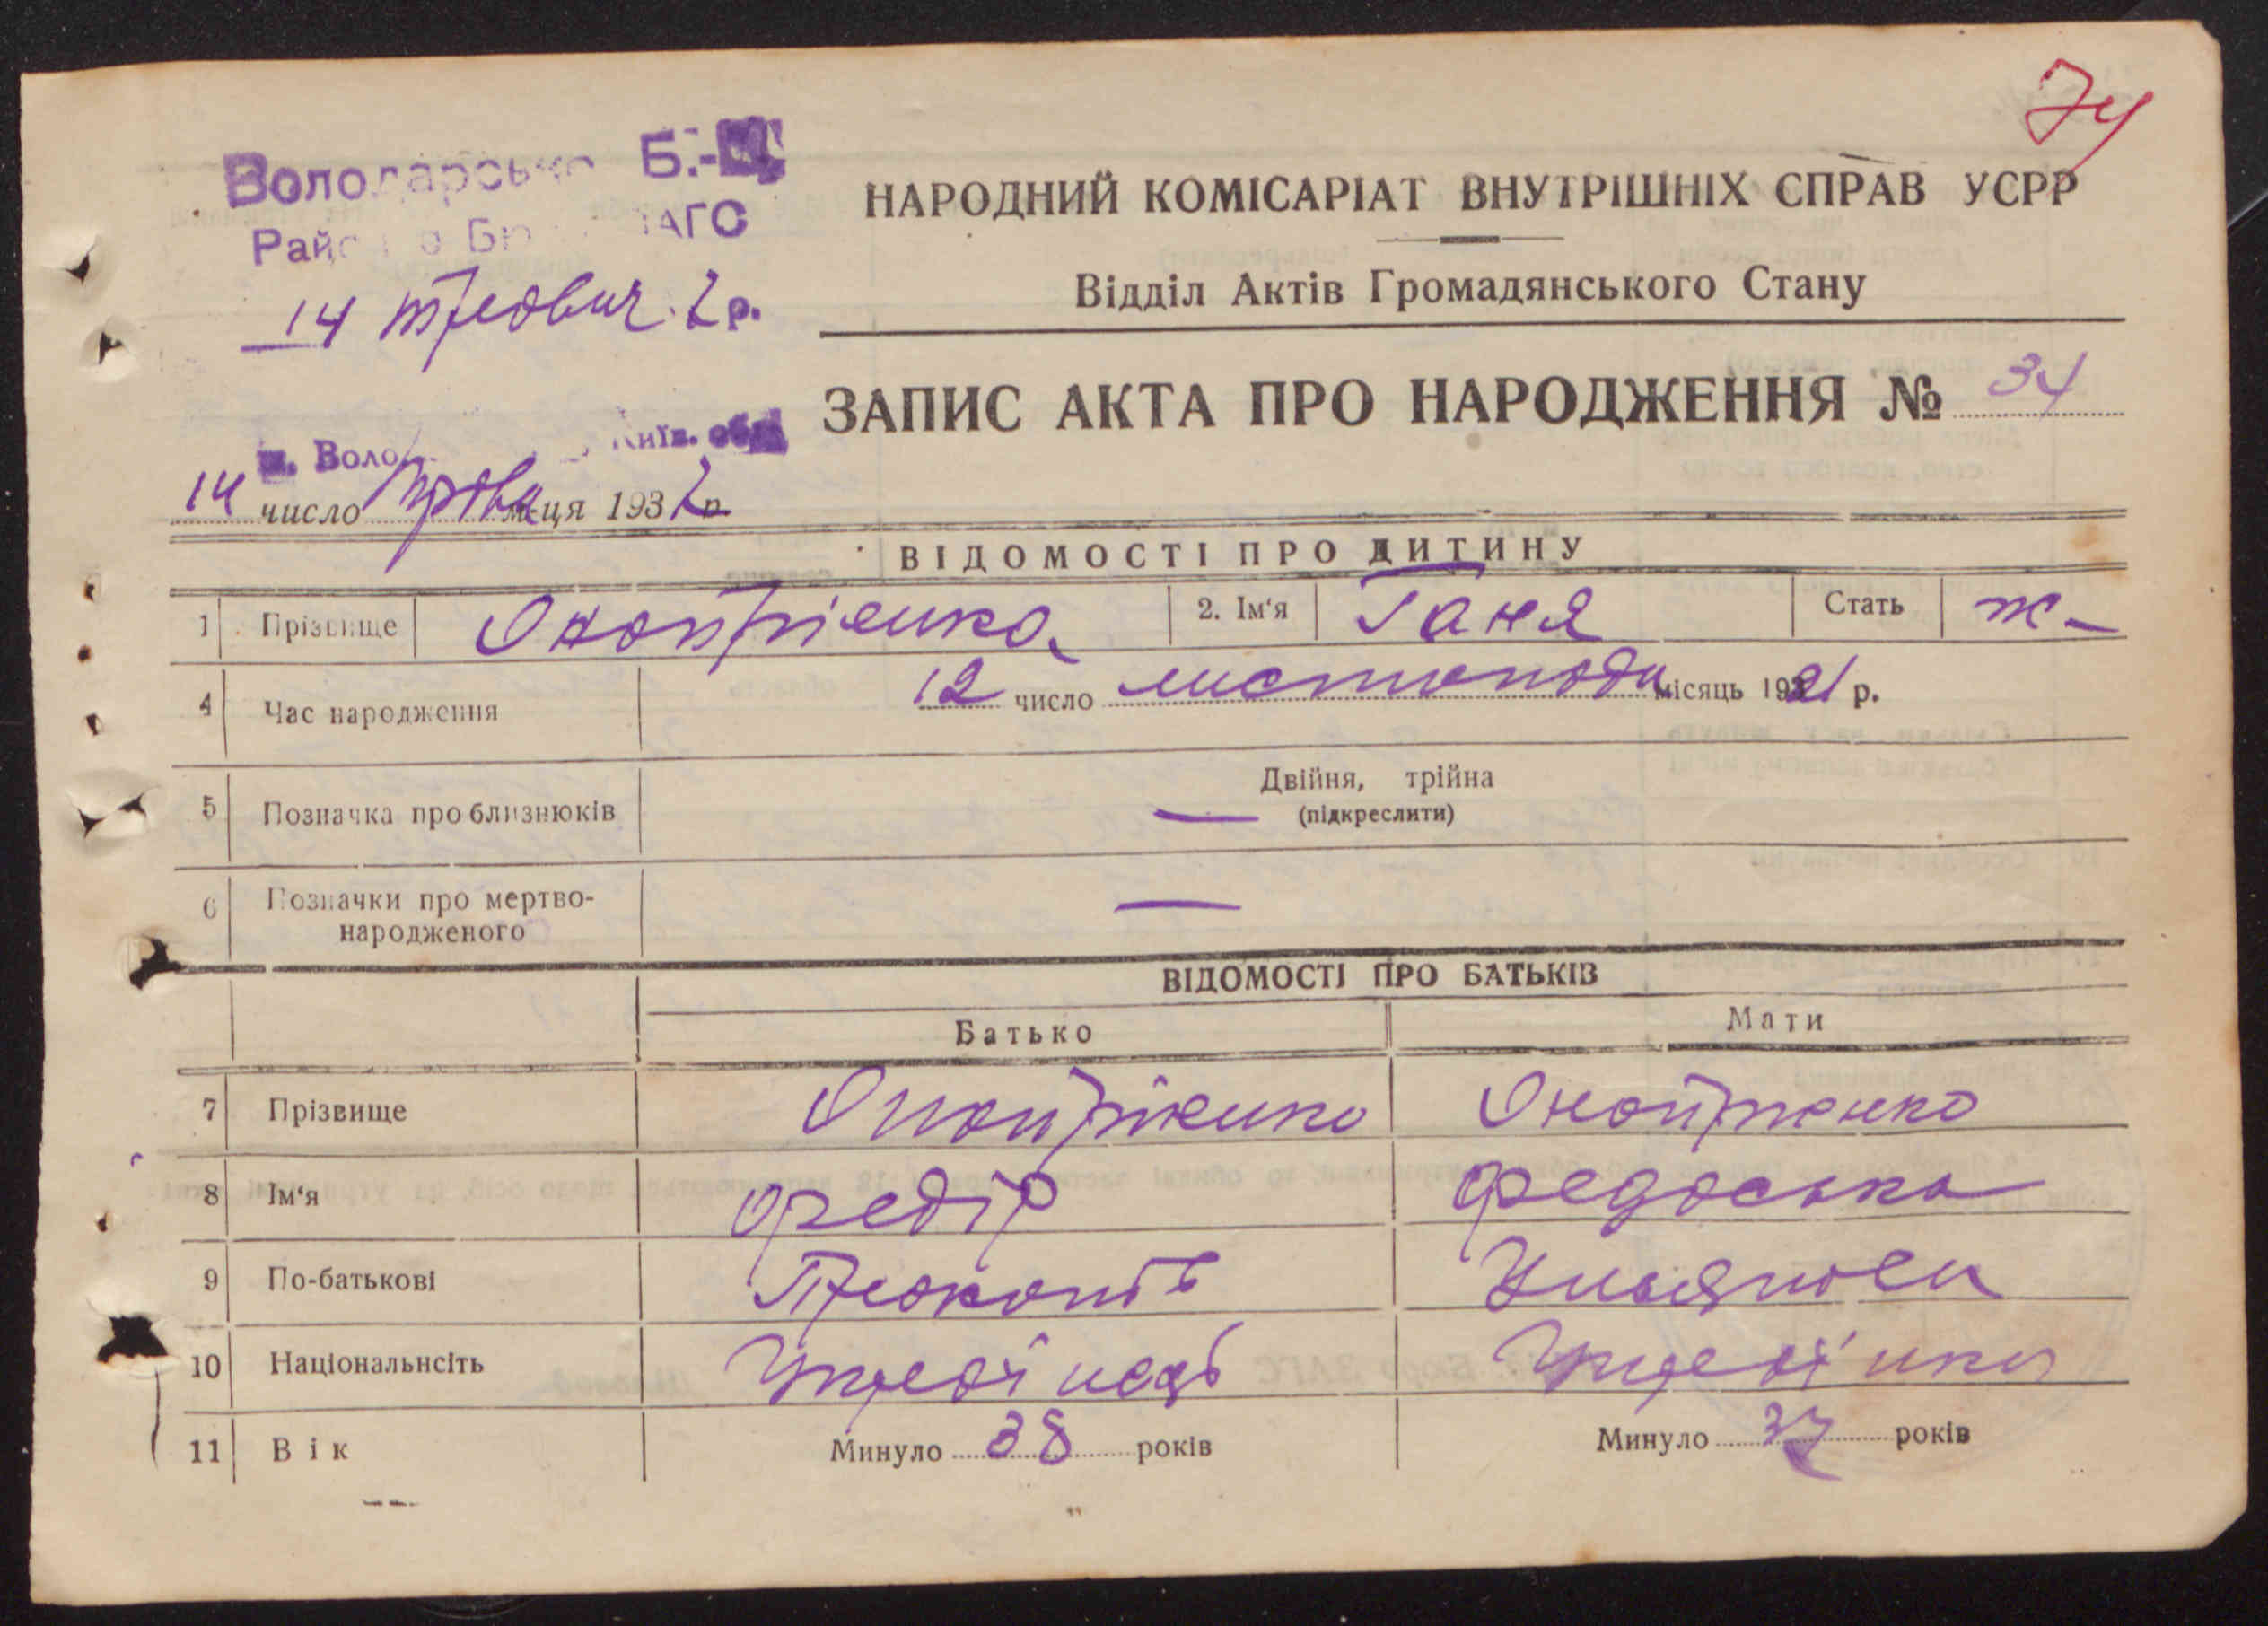 74
Володарське Б.-Ц.
НАРОДНИЙ КОМІСАРІАТ ВНУТРІШНІХ СПРАВ УСРР
ЗАГС
Відділ Актів Громадянського Стану
14 р.
ЗАПИС АКТА ПРО НАРОДЖЕННЯ № 34
Київ. обл.
14 число м-ця 193 р.
ВІДОМОСТІ ПРО ДИТИНУ
1 Прізвище Онопрієнко 2. Ім‘я Ганя Стать ж-
4 Час народження 12 число листопада місяць 1921 р.
5 Позначка про близнюків Двійня, трійна
— (підкреслити)
6 Позначки про мертво-
народженого —
ВІДОМОСТІ ПРО БАТЬКІВ
Батько Мати
7 Прізвище Онопрієнко Онопрієнко
8 Ім‘я Федір Федоська
9 По-батькові Прокопів
10 Національнсіть
11 Вік Минуло 38 років Минуло 37 років